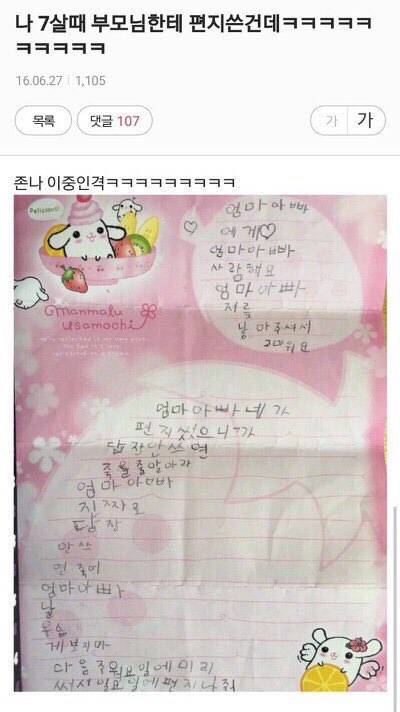 나 7살때 부모님한테 편지쓴건데ㅋㅋㅋㅋㅋ
ㅋㅋㅋㅋㅋ
16.06.27 | 1,105
목록
댓글 107
가 가
존나 이중인격ㅋㅋㅋㅋㅋㅋㅋㅋㅋ
Delicious!
Manmalu
Usamochi
엄마아빠
에게♡
엄마아빠
사랑해요
엄마아빠
저를
낳아주셔서
고마워요
엄마아빠 네가
편지썼으니가
답장안쓰면
죽을줄알아라
엄마아빠
진짜로
답장
안쓰
면 죽어
엄마아빠
날
우습
게보지마
다음주 월요일에미리
써서일요일에편지나줘